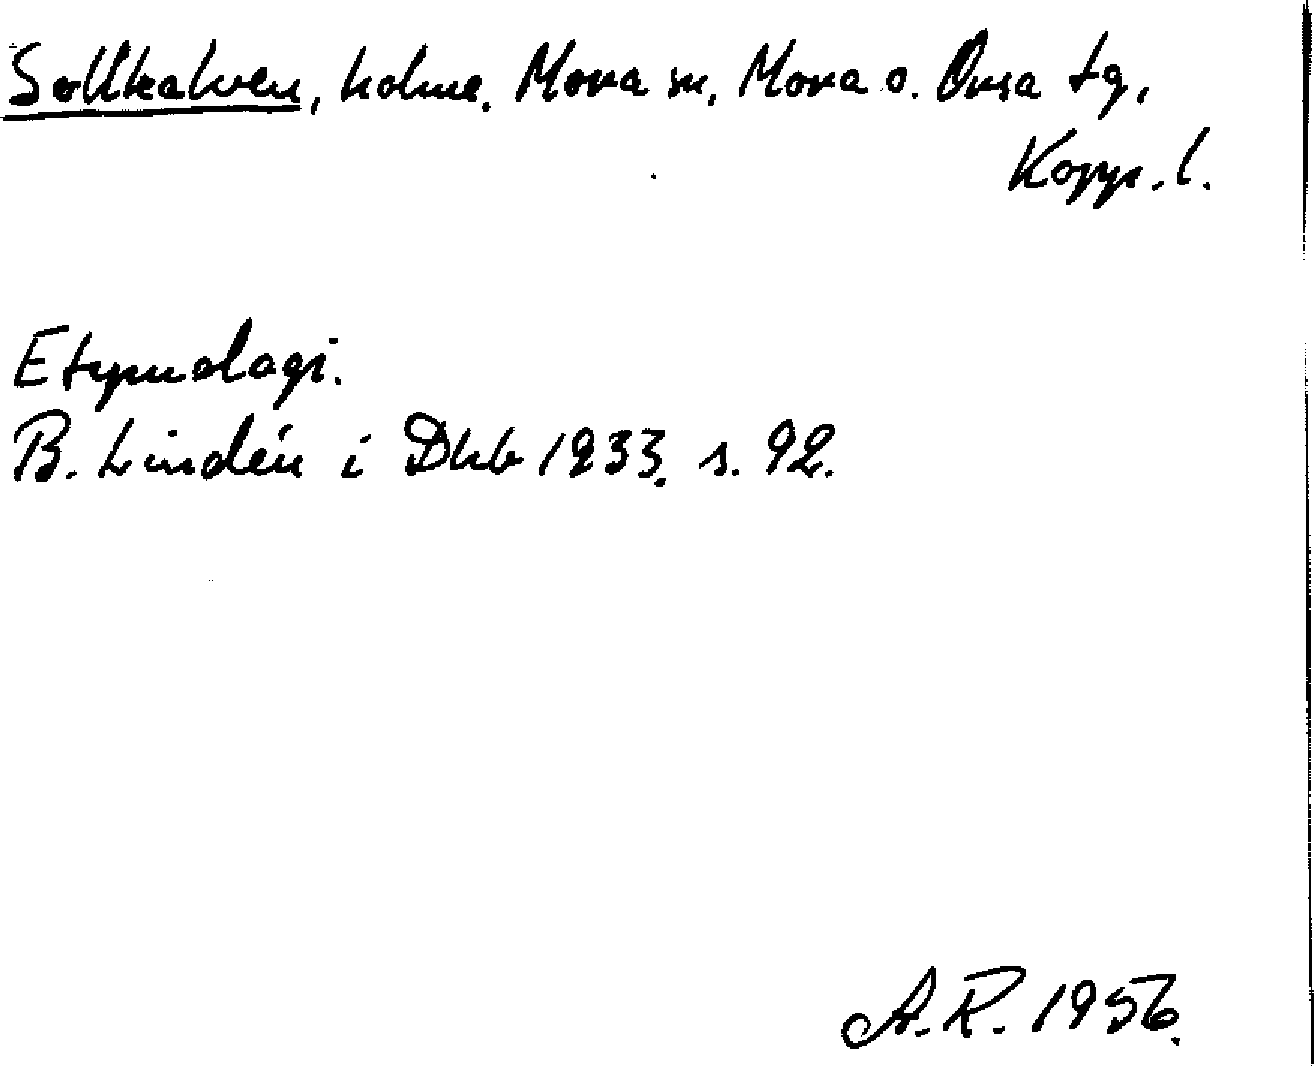 Sollkalven, holme. Mora sn, Mora o. Orsa tg,
Kopp. l.
Etymologi.
B. Lindén i Dhb 1933. s. 92.
A.R. 1956.